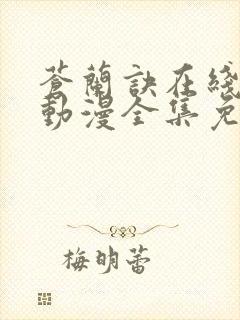 蒼蘭訣在綫
動漫全集免
梅明蕾